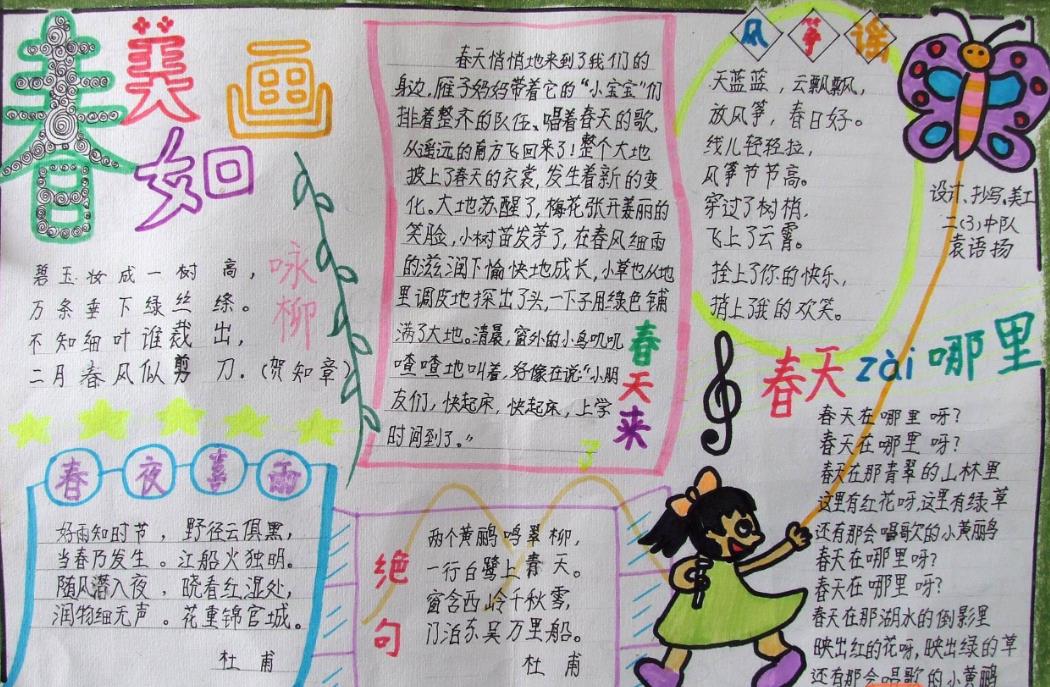 春
美
如
画
咏
柳
碧玉妆成一树高，
万条垂下绿丝绦。
不知细叶谁裁出，
二月春风似剪刀.（贺知章）
春夜喜雨
好雨知时节，野径云俱黑，
当春乃发生。江船火独明。
随风潜入夜，晓看红湿处，
润物细无声。花重锦官城。
杜甫
春天悄悄地来到了我们的
身边,雁子妈妈带着它的“小宝宝”们
排着整齐的队伍、唱着春天的歌,
从遥远的南方飞回来了!整个大地
披上了春天的衣裳,发生着新的变
化。大地苏醒了,梅花张开美丽的
笑脸,小树苗发芽了,在春风细雨
的滋润下愉快地成长,小草也从地
里调皮地探出了头,一下子用绿色铺
满了大地。清晨,窗外的小鸟叽叽
喳喳地叫着,好像在说“小朋
友们,快起床,快起床,上学
时间到了。”
春
天
来
了
绝
句
两个黄鹂鸣翠柳,
一行白鹭上青天。
窗含西岭千秋雪,
门泊东吴万里船。
杜甫
风筝谣
天蓝蓝,云飘飘,
放风筝,春日好。
线儿轻轻拉,
风筝节节高。
穿过了树梢,
飞上了云霄。
拴上了你的快乐,
捎上了我的欢笑。
设计、抄写、美工
二(3)中队
袁语扬
春天zài哪里
春天在哪里呀?
春天在哪里呀?
春天在那青翠的山林里
这里有红花呀,这里有绿草
还有那会唱歌的小黄鹂
春天在哪里呀?
春天在哪里呀?
春天在那湖水的倒影里
映出红的花呀,映出绿的草
还有那会唱歌的小黄鹂